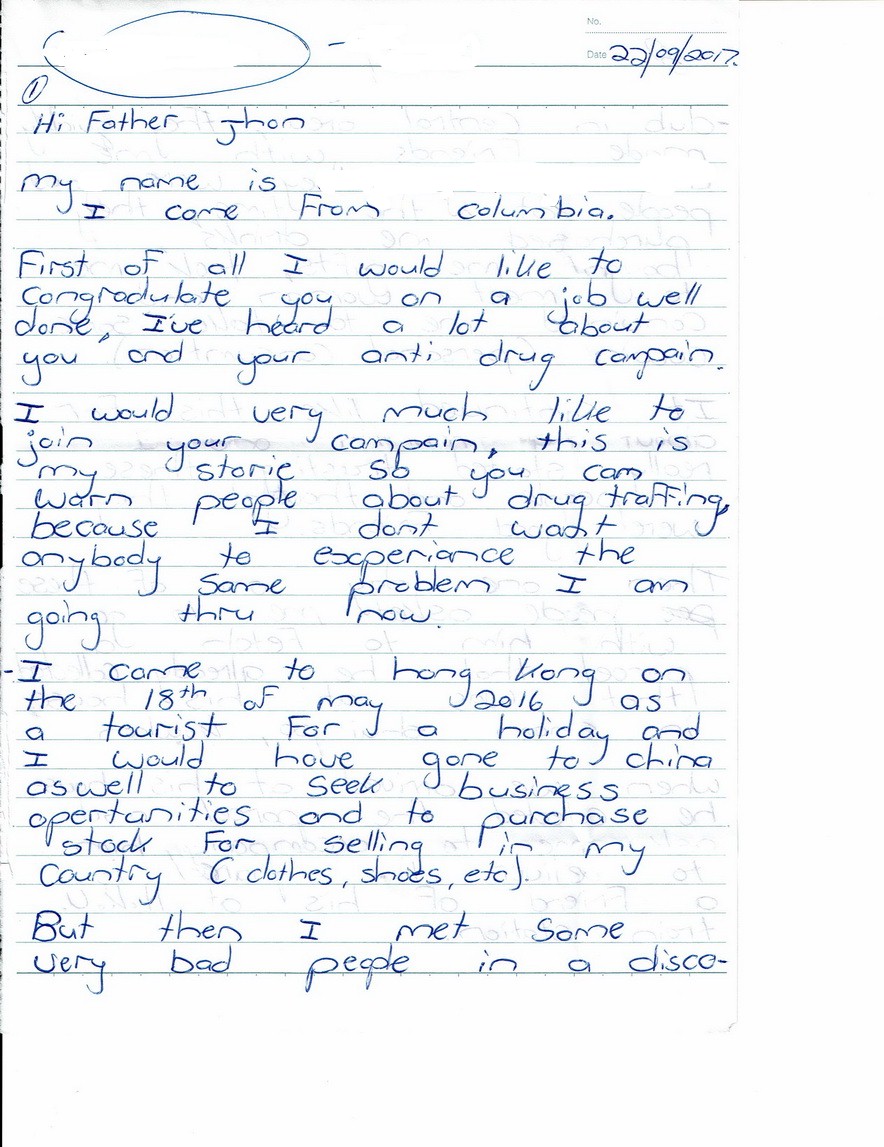 No.
Date 22/09/2017.
1
Hi Father Jhon
my name is
I come From Columbia.
First of all I would like to
Congradulate you on a job well
done, I've heard a lot about
you and your anti drug campain.
I would very much like to
join your campain, this is
my storie so you can
warn people about drug traffing,
because I dont want
anybody to experiance the
same problem I am
going thru now.
-I came to hong Kong on
the 18th of may 2016 as
a tourist For a holiday and
I would have gone to china
aswell to seek business
opertunities and to purchase
stock For selling in my
Country (clothes, shoes, etc).
But then I met some
very bad people in a disco-